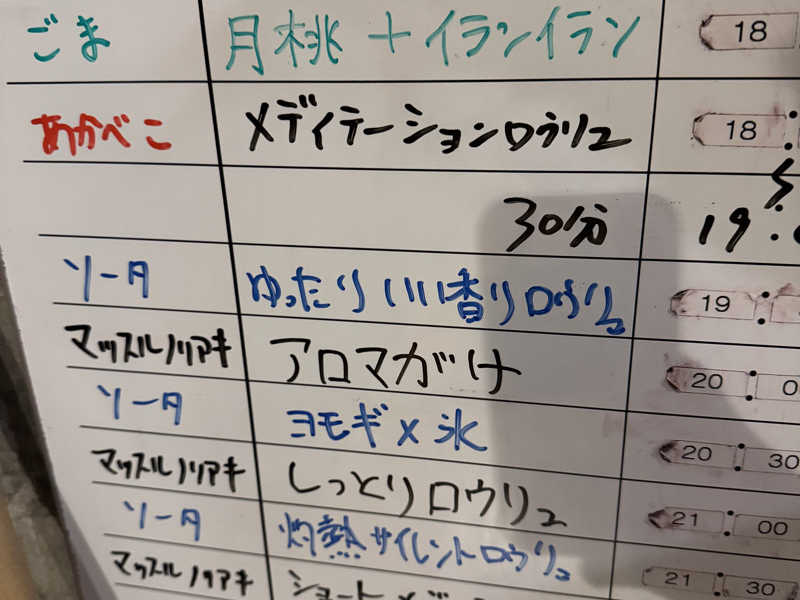 ごま 月桃+イランイラン 18
あかべこ メディテーションロウリュ 18:
30分 19:
ソータ ゆったりいい香りロウリュ 19:
マッスルノリアキ アロマがけ 20:0
ソータ ヨモギ×氷 20:30
マッスルノリアキ しっとりロウリュ 21:00
ソータ 灼熱サイレントロウリュ 21:30
マッスルノリアキ ショート